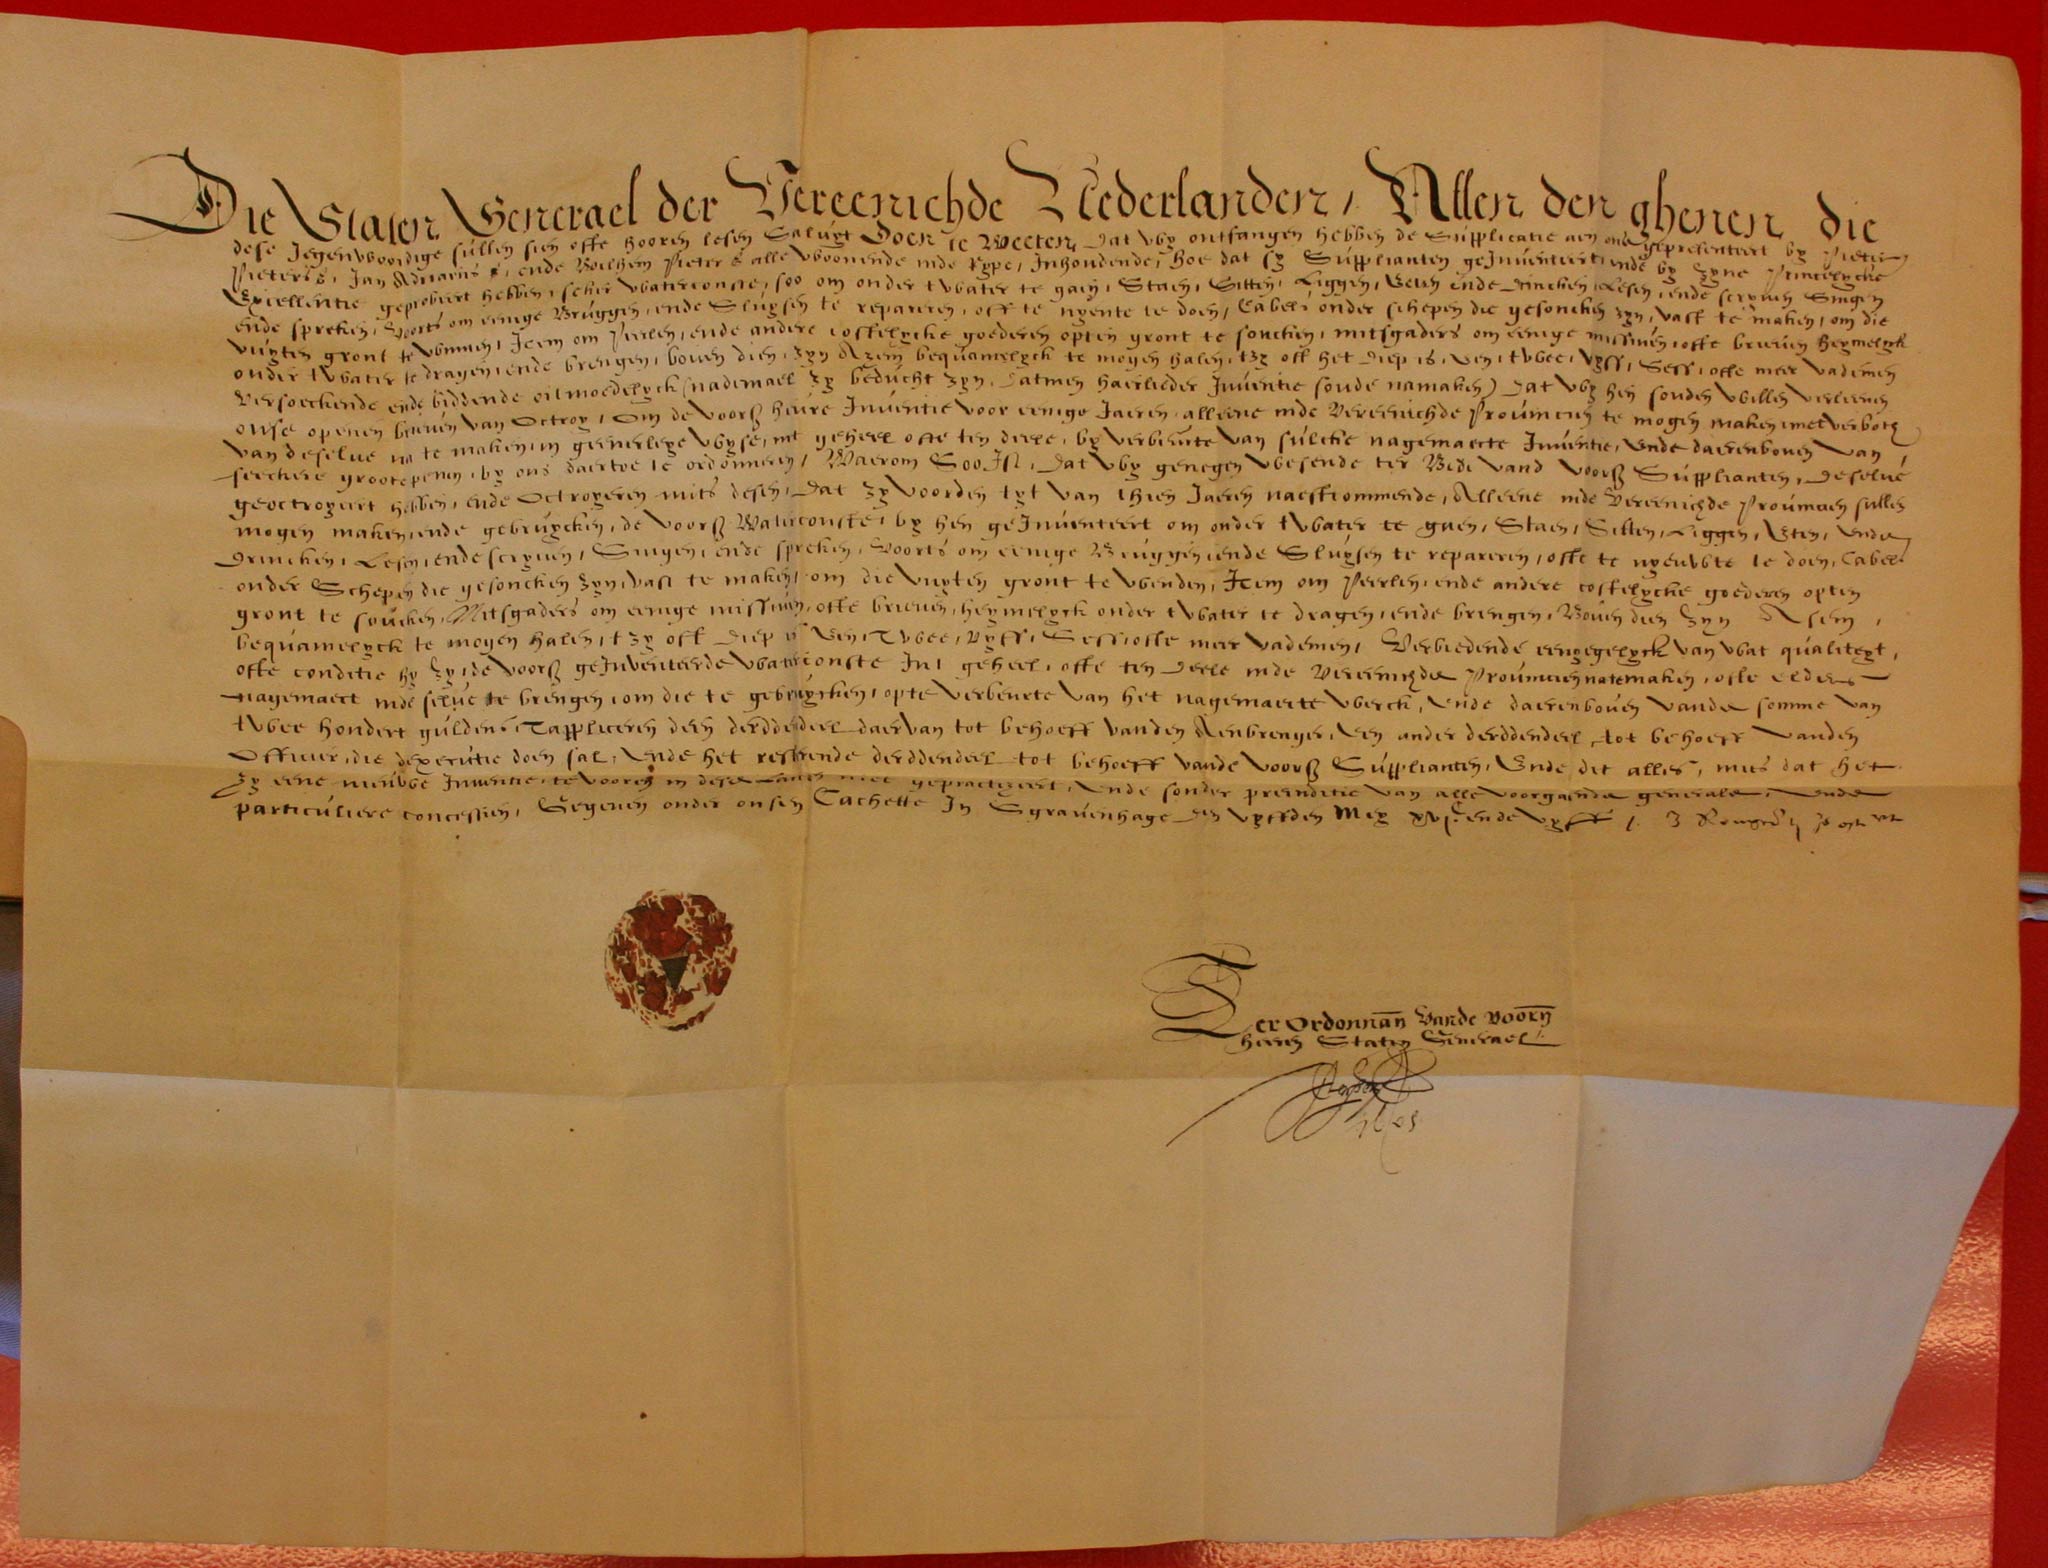 Die Staten Generael der Vereenichde Nederlanden, Allen den ghenen die
dese Jegenwoordige sullen sien offe hooren lesen Saluyt Doen te Weeten, Dat wy ontfangen hebben de Supplicatie aen ons gepresenteert by Pieter
Pieters, Jan Adriaens, ende Willem Pieters alle woonende inde Rype, Inhoudende, hoe dat sy Supplianten geInventeert, ende by Zyne Princelycke
Excellentie geprobeert hebben, seker waterconste, soo om onder twater te gaen, Staen, Sitten, Liggen, Eeten ende Drincken, Lesen, ende scryven, Singen
ende spreken, Voorts om eenige Bruggen, ende Sluysen te repareren, off te nyeute te doen, Cabels onder schepen die gesoncken zyn, vast te maken, om die
vuyten gront te winnen, Item om Peerlen, ende andere costelycke goederen opten gront te soucken, mitsgaders om eenige missiven, offe brieven heymelyck
onder twater te dragen, ende brengen, boven dien, zyn Azem bequamelyck te mogen halen, tzy off het diep is, een, twee, vyff, Sess, offe meer vademen
Versoeckende ende biddende oitmoedelyck (nademael zy beducht zyn, datmen haerlieder Inventie soude namaken) Dat wy hen souden willen verleenen
onse openen brieven van Octroy, Om de voors heure Inventie voor eenige Jaeren, alleene inde Vereenichde Provincien te mogen maken, met verbot
van deselve na te maken, in geenerleye wyse, int geheel ofte ten deele, by verbeurte van sulcke nagemaecte Inventie, Ende daerenboven van
seeckere groote penen, by ons daertoe te ordonneren, Waerom Soo Ist, Dat wy genegen wesende ter Bede vand voors Supplianten, deselve
geoctroyeert hebben, ende Octroyeren mits desen, Dat zy voorden tyt van thien Jaeren naestcommende, Alleene inde Vereenichde Provincien sullen
mogen maken, ende gebruycken, de voors Waterconste, by hen geInventeert om onder twater te gaen, Staen, Sitten, Liggen, Eten, ende
Drincken, Lesen, ende scryven, Singen, ende spreken, Voorts om eenige Bruggen, ende Sluysen te repareren, offe te nyeuwte te doen, Cabels
onder Schepen die gesoncken zyn, vast te maken, om die vuyten gront te winden, Item om Peerlen, ende andere costelycke goederen opten
gront te soucken, Mitsgaders om eenige missiven, offe brieven, heymelyck onder twater te dragen, ende brengen, Boven dien zyn Asem,
bequamelyck te mogen halen, tzy off diep is Een, Twee, Vyff, Sess, offe meer vademen, Verbiedende eenyegelyck van wat qualiteyt,
offe conditie hy zy, de voors geInventeerde waterconste Int geheel, offe ten deele inde Vereenichde Provincien natemaken, offe elders
nagemaect inde selve te brengen, om die te gebruycken, opte verbeurte van het nagemaecte werck, Ende daerenboven vande somme van
twee hondert guldens, Tappliceren deen derddendeel daervan tot behoeff vanden Aenbrenger, Een ander derddendeel, tot behoeff vanden
Officier, die dexecutie doen sal, Ende het resterende derddendeel tot behoeff vande voors Supplianten, Ende dit alles, mits dat het
zy eene nieuwe Inventie, te voeren in dese Landen niet gepractizeert, Ende sonder preiuditie van alle voorgaende generale, Ende
particuliere concessien, Gegeven onder onsen Cachette In Sgravenhage den vyffden Mey xvjc ende vyff
Ter Ordonnan Vande voorn
Heeren Staten Generael